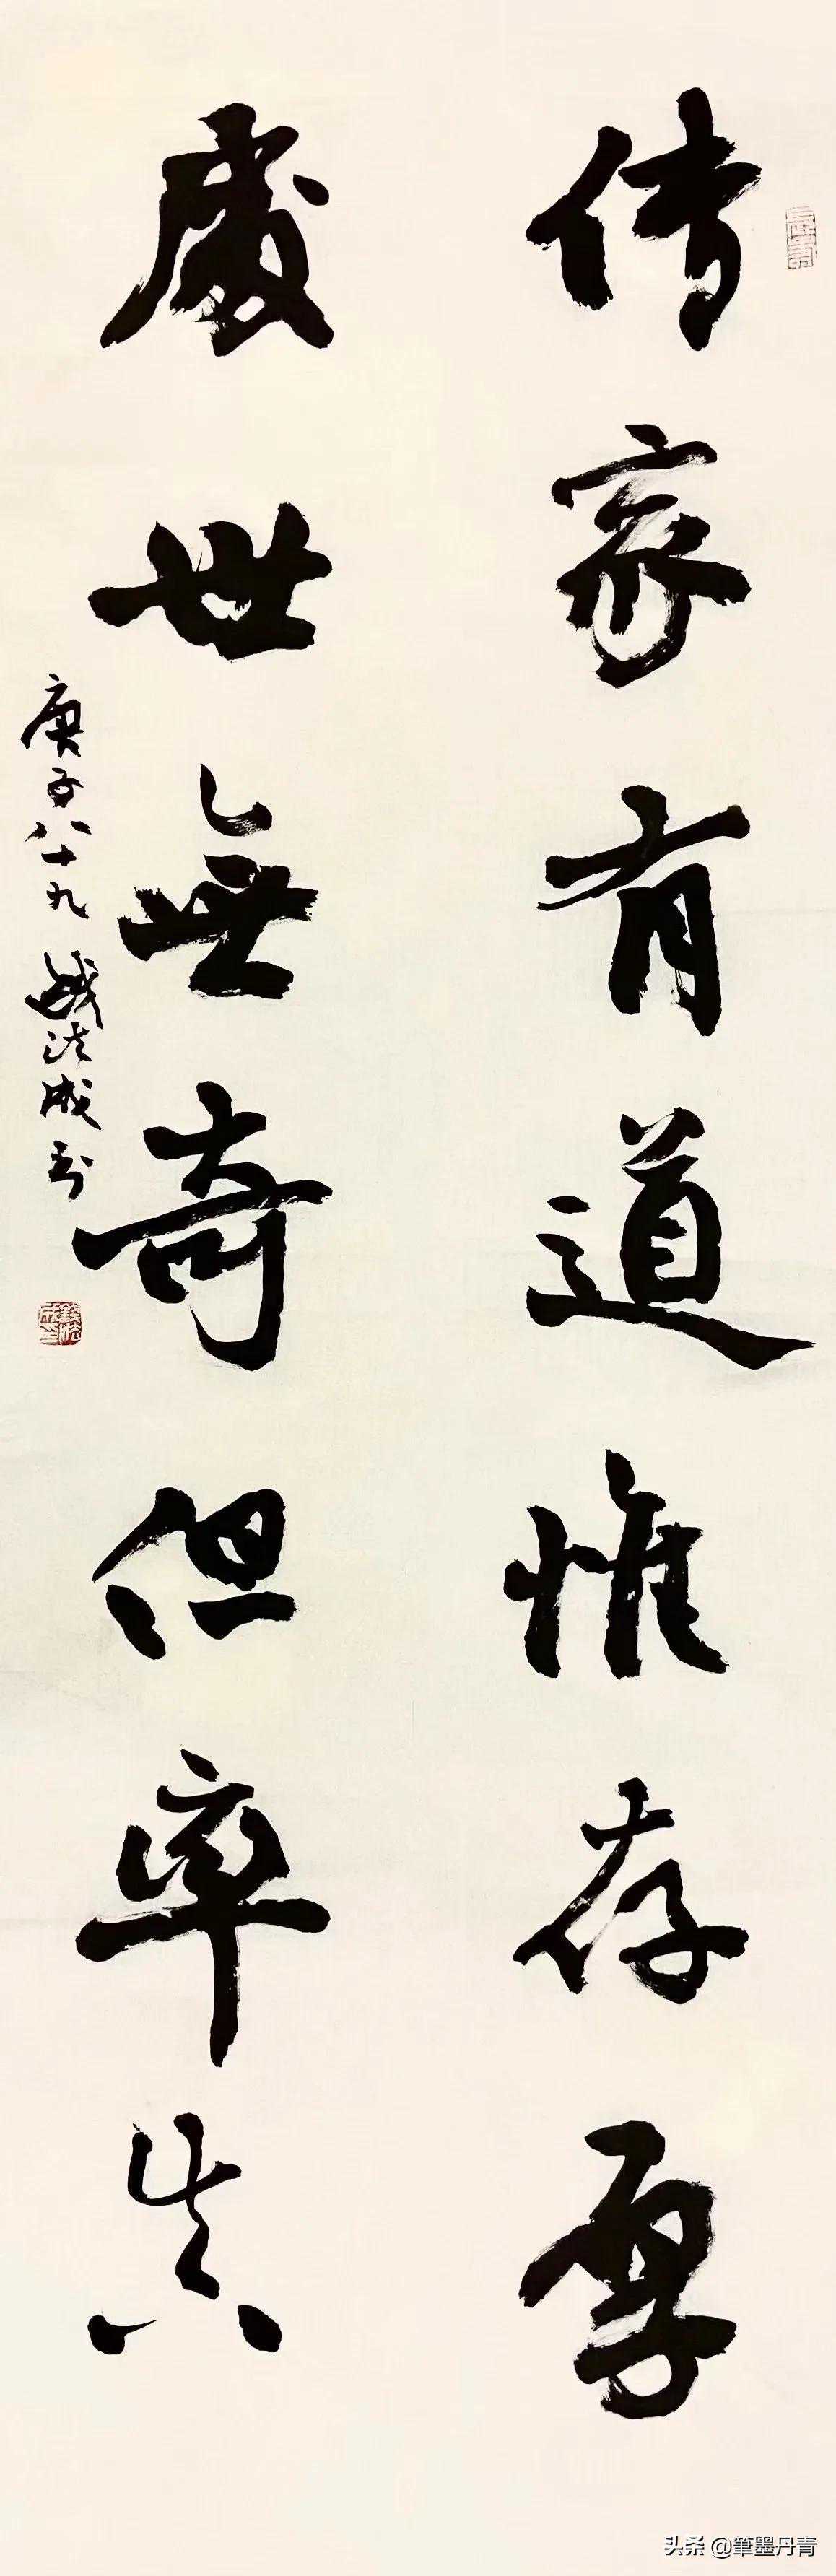 傳家有道惟存厚
處世無奇但率真
庚子八十九 戰法成書
头条 @筆墨丹青